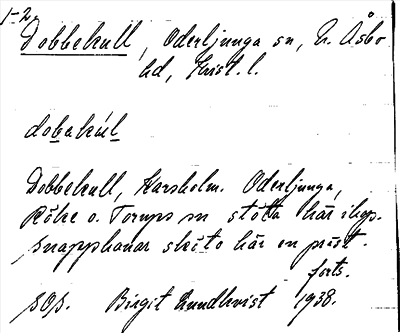 1-2.
Dobbekull, Oderljunga sn, N. Åsbo
hd, Krist. l.
dobakúl
Dobbekull, Oderljunga,
Röke o. Torups sn stötta här ihop.
Snapphanar sköto här en präst.
forts.
Birgit Lundkvist 1938.